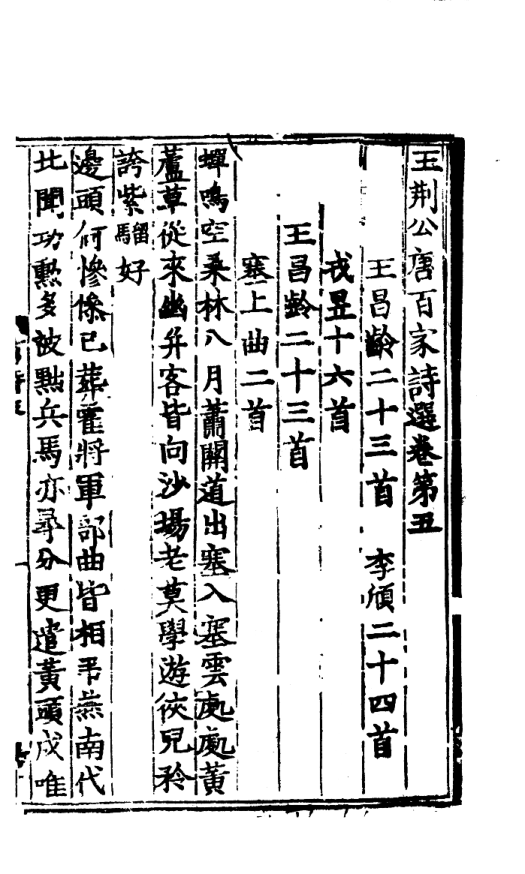 王荆公唐百家詩選卷第五
王昌齡二十三首　李頎二十四首
戎昱十六首
王昌齡二十三首
塞上曲二首
蟬鳴空桑林八月蕭關道出塞入塞雲處處黃
蘆草從來幽并客皆向沙場老莫學遊俠兒矜
誇紫騮好
邊頭何慘慘已葬霍將軍部曲皆相弔燕南代
北聞功勲多被黜兵馬亦尋分更遣黃頭戍唯